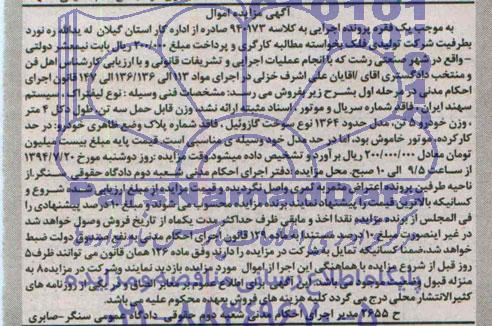 آگهی مزایده اموال
به موجب یک فقره پرونده اجرایی به کلاسه ۹۴۰۱۷۳ صادره از اداره کار استان گیلان له یدالله ره نورد
بطرفیت شرکت تولیدی فلک بخواسته مطالبه کارگری و پرداخت مبلغ ۲۰۰/۰۰۰ ریال بابت نیمعشر دولتی
- واقع در شهر صنعتی رشت که با انجام عملیات اجرایی و تشریفات قانونی و با ارزیابی کارشناس اهل فن
و منتخب دادگستری آقای علی اشرف خزلی در اجرای مواد ۱۱۳ الی ۱۳۶ قانون اجرای
احکام مدنی در مرحله اول بشرح زیر بفروش می رسد: مشخصات فنی وسیله: نوع لیفتراک، سیستم
سهند ایران، فاقد شماره سریال و موتور، اسناد مثبته ارائه نشد. وزن قابل حمل سه تن، طول دکل ۴ متر
، وزن خودرو ۵ تن، مدل حدود ۱۳۶۴ نوع سوخت گازوئیل، فاقد شماره پلاک وضع ظاهری خودرو: در حد
کارکرده، موتور خاموش بود، اما در حد مدل خود وسیله ی مناسبی است. قیمت پایه مبلغ بیست میلیون
تومان معادل ۲۰۰/۰۰۰/۰۰۰ ریال برآورد و تشخیص داده میشود. وقت مزایده: روز دوشنبه مورخ ۱۳۹۴/۷/۲۰
از ساعت ۹/۵ الی ۱۰ صبح. محل مزایده: دفتر اجرای احکام مدنی شعبه دوم دادگاه حقوقی سنگر. از
ناحیه طرفین پرونده اعتراض مثمر به ثمری واصل نگردیده و قیمت مزایده از مبلغ ارزیابی شده شروع و
کسانیکه بالاترین قیمت را پیشنهاد نمایند برنده مزایده شناخته می شوند و مبلغ ۱۰ درصد پیشنهادی را
فی المجلس از برنده مزایده نقدا اخذ و مابقی ظرف حداکثر مدت یکماه از تاریخ فروش وصول خواهد شد
در غیر اینصورت مبلغ ۱۰ درصد مستندا به ماده ۱۲۹ قانون اجرای احکام مدنی به نفع صندوق دولت ضبط
خواهد شد. ضمنا کسانیکه تمایل به شرکت در مزایده را دارند وفق ماده ۱۲۶ همان قانون می توانند ظرف ۵
روز قبل از شروع مزایده با هماهنگی این اجرا از اموال مورد مزایده بازدید نمایند و شرکت در مزایده به
منزله قبول وضعیت موجود می باشد. این آگهی برای اطلاع عموم و سایر افراد در یکی از روزنامه های
کثیرالانتشار محلی درج می گردد کلیه هزینه های فروش بعهده محکوم علیه می باشد.
ح ۲۶۵۵ مدیر اجرای احکام مدنی شعبه دوم حقوقی دادگاه عمومی سنگر- صابری